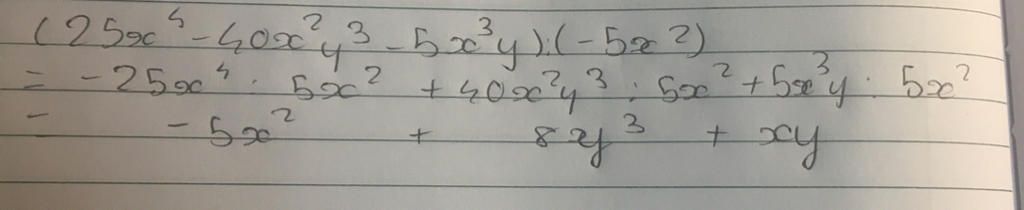 (25x⁴ - 40x²y³ - 5x³y):(-5x²)
= -25x⁴ : 5x² + 40x²y³ : 5x² + 5x³y : 5x²
= -5x² + 8xy³ + xy